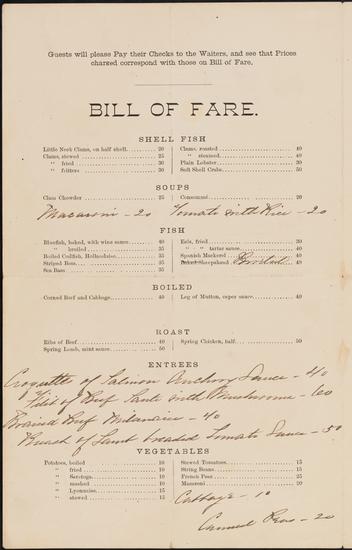 Guests will please Pay their Checks to the Waiters, and see that Prices
charged correspond with those on Bill of Fare.
BILL OF FARE.
SHELL FISH
Little Neck Clams, on half shell 20
Clams, stewed 25
" fried 30
" fritters 30
Clams, roasted 40
" steamed 40
Plain Lobster 30
Soft Shell Crabs 50
SOUPS
Clam Chowder 25
Consommé 20
Macaroni - 20
Tomato with Rice - 20
FISH
Bluefish, baked, with wine sauce 40
" broiled 35
Boiled Codfish, Hollandaise 35
Striped Bass 45
Sea Bass 35
Eels, fried 30
" " tartar sauce 40
Spanish Mackerel 40
Baked Sheepshead Broiled 40
BOILED
Corned Beef and Cabbage 40
Leg of Mutton, caper sauce 40
ROAST
Ribs of Beef 40
Spring Lamb, mint sauce 50
Spring Chicken, half 50
ENTREES
Croquettes of Salmon Anchovy Sauce - 40
Filet of Beef Sauté with Mushrooms - 60
Braised Beef Milanaise - 40
of Lamb breaded Tomato Sauce - 50
VEGETABLES
Potatoes, boiled 10
" fried 10
" Saratoga 10
" mashed 10
" Lyonnaise 15
" stewed 15
Stewed Tomatoes 15
String Beans 15
French Peas 25
Macaroni 20
Cabbage - 10
Peas - 20